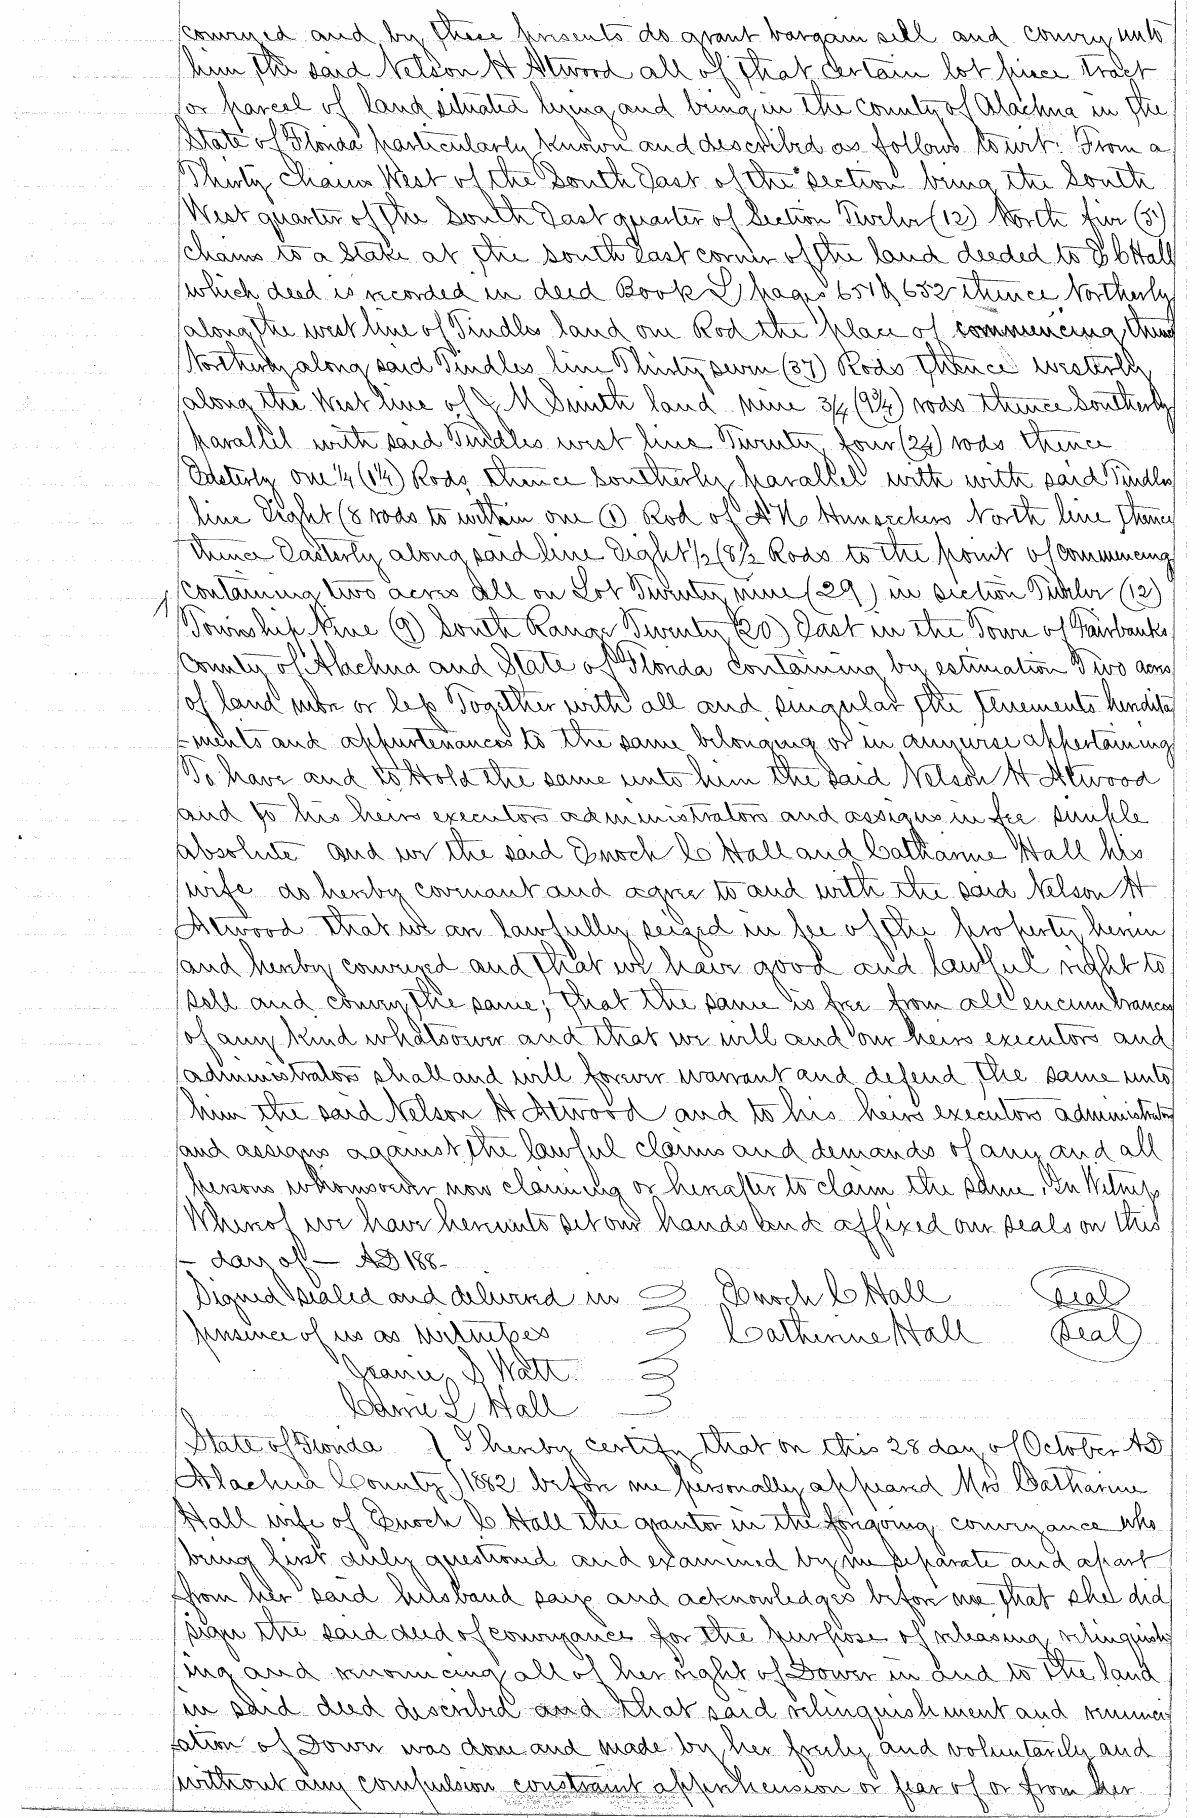 conveyed and by these presents do grant bargain sell and convey unto
him the said Nelson H Atwood all of that certain lot piece tract
or parcel of land situated lying and being in the County of Alachua in the
State of Florida particularly known and described as follows to wit: From a
Thirty Chains West of the South East of the section being the South
West quarter of the South East quarter of Section Twelve (12) North five (5)
chains to a Stake at the South East corner of the land deeded to E C Hall
which deed is recorded in deed Book L pages 651 & 652 thence Northerly
along the west line of Tindles land one Rod the place of commencing thence
Northerly along said Tindles line Thirty seven (37) Rods thence westerly
along the West line of J M Smith land nine 3/4 (9 3/4) rods thence Southerly
parallel with said Tindles west line Twenty four (24) rods thence
Easterly one 1/4 (1 1/4) Rods thence Southerly parallel with with said Tindles
line Eight (8 rods to within one (1) Rod of A K Hunsickers North line thence
thence Easterly along said line Eight 1/2 (8 1/2 Rods to the point of commencing
containing two acres all on Lot Twenty nine (29) in section Twelve (12)
Township Nine (9) South Range Twenty (20) East in the Town of Fairbanks
County of Alachua and State of Florida containing by estimation Two acres
of land more or less Together with all and singular the tenements heredita
-ments and appurtenances to the same belonging or in anywise appertaining
To have and to Hold the same unto him the said Nelson H Atwood
and to his heirs executors administrators and assigns in fee simple
absolute and we the said Enoch C Hall and Catharine Hall his
wife do hereby covenant and agree to and with the said Nelson H
Atwood that we are lawfully seized in fee of the property herein
and hereby conveyed and that we have good and lawful right to
sell and convey the same; that the same is free from all encumbrances
of any kind whatsoever and that we will and our heirs executors and
administrators shall and will forever warrant and defend the same unto
him the said Nelson H Atwood and to his heirs executors administrators
and assigns against the lawful claims and demands of any and all
persons whomsoever now claiming or hereafter to claim the same. In Witness
Whereof we have hereunto set our hands and affixed our seals on this
- day of - AD 188-
Signed sealed and delivered in Enoch C Hall Seal
presence of us as witnesses Catherine Hall Seal
Jeanie S Watt
Carrie L Hall
State of Florida } I hereby certify that on this 28 day of October AD
Alachua County } 1882 before me personally appeared Mrs Catharine
Hall wife of Enoch C Hall the grantor in the foregoing conveyance who
being first duly questioned and examined by me separate and apart
from her said husband says and acknowledges before me that she did
sign the said deed of conveyance for the purpose of releasing relinquish
ing and renouncing all of her right of Dower in and to the land
in said deed described and that said relinquishment and renunci
ation of Dower was done and made by her freely and voluntarily and
without any compulsion constraint apprehension or fear of or from her